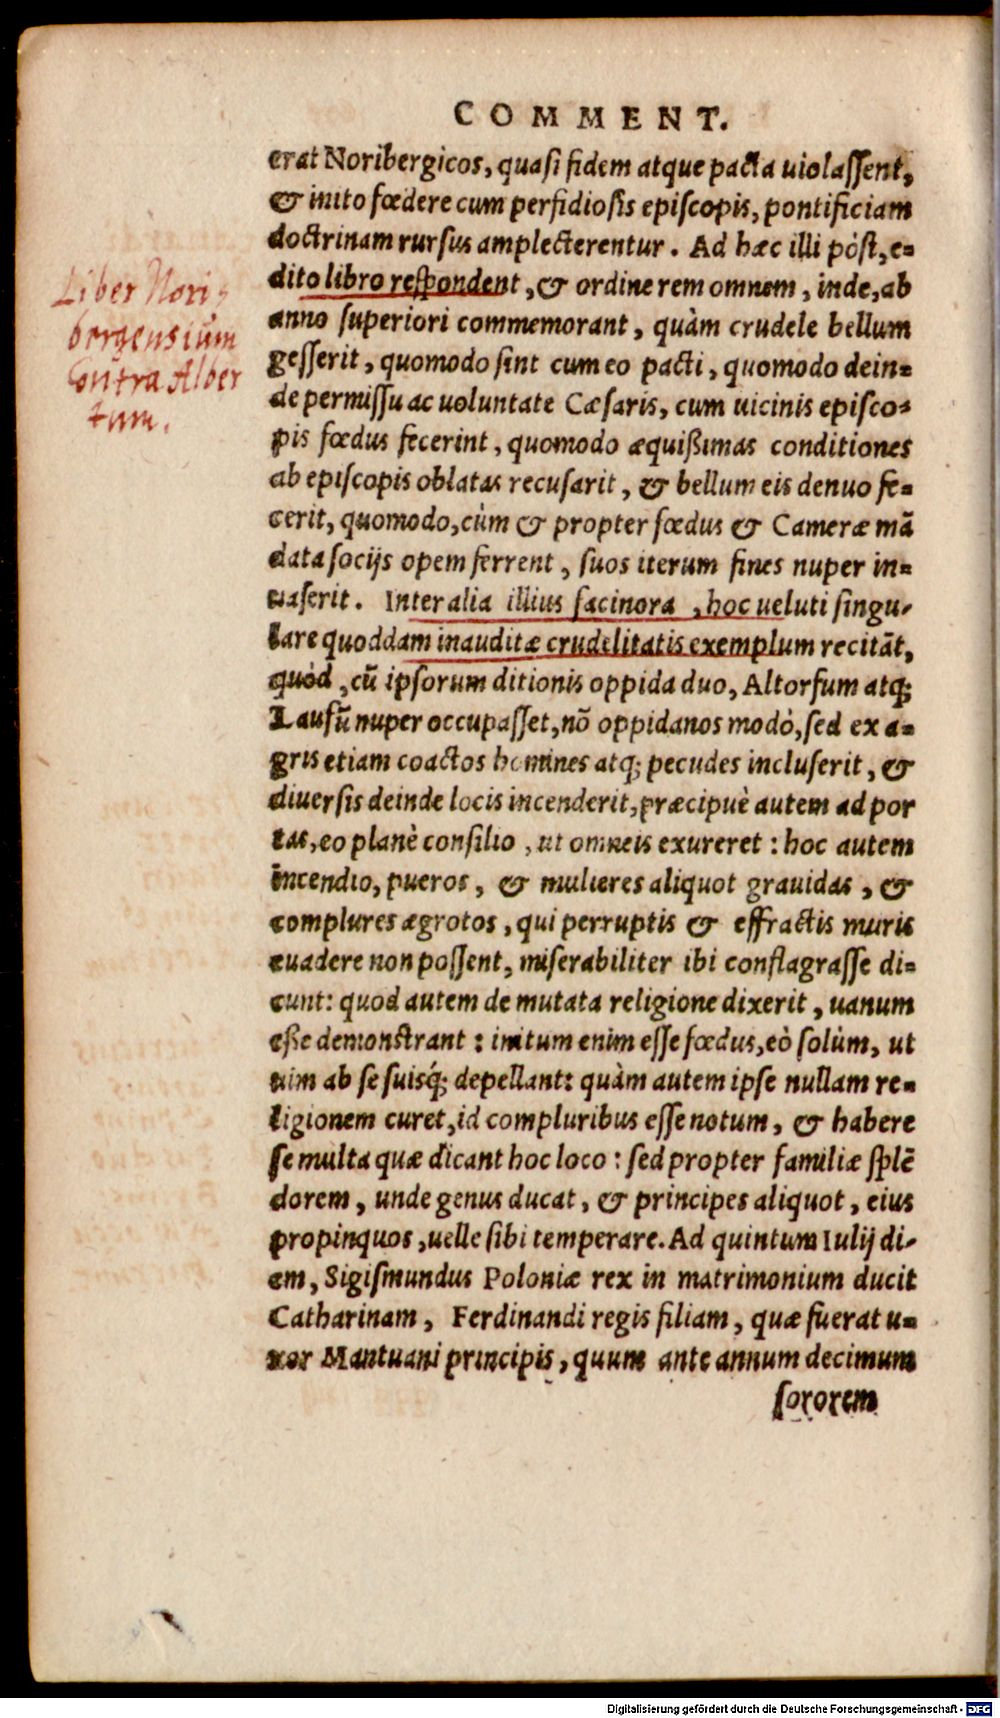 COMMENT.
erat Noribergicos, quasi fidem atque pacta uiolaſſent,
& inito fœdere cum perfidiosis episcopis, pontificiam
doctrinam rursus amplecterentur. Ad hæc illi pòst, e-
dito libro respondent, & ordine rem omnem, inde, ab
anno superiori commemorant, quàm crudele bellum
geſſerit, quomodo sint cum eo pacti, quomodo dein-
de permiſſu ac uoluntate Cæsaris, cum uicinis episco-
pis fœdus fecerint, quomodo æquißimas conditiones
ab episcopis oblatas recusarit, & bellum eis denuo fe-
cerit, quomodo, cùm & propter fœdus & Cameræ mã
data socijs opem ferrent, suos iterum fines nuper in-
uaserit. Inter alia illius facinora, hoc ueluti singu-
lare quoddam inauditæ crudelitatis exemplum recitãt,
quòd, cũ ipsorum ditionis oppida duo, Altorfum atq;
Laufũ nuper occupaſſet, nõ oppidanos modò, sed ex a-
gris etiam coactos homines atq; pecudes incluserit, &
diuersis deinde locis incenderit, præcipuè autem ad por
tas, eo planè consilio, ut omneis exureret: hoc autem
incendio, pueros, & mulieres aliquot grauidas, &
complures ægrotos, qui perruptis & effractis muris
euadere non poſſent, miserabiliter ibi conflagraſſe di-
cunt: quod autem de mutata religione dixerit, uanum
eße demonstrant: initum enim eſſe fœdus, eò solùm, ut
uim ab se suisq́; depellant: quàm autem ipse nullam re-
ligionem curet, id compluribus eſſe notum, & habere
se multa quæ dicant hoc loco: sed propter familiæ splẽ
dorem, unde genus ducat, & principes aliquot, eius
propinquos, uelle sibi temperare. Ad quintum Iulij di-
em, Sigismundus Poloniæ rex in matrimonium ducit
Catharinam, Ferdinandi regis filiam, quæ fuerat u-
xor Mantuani principis, quum ante annum decimum
sororem
Liber Nori-
bergensium
Contra Alber
tum.
Digitalisierung gefördert durch die Deutsche Forschungsgemeinschaft - DFG